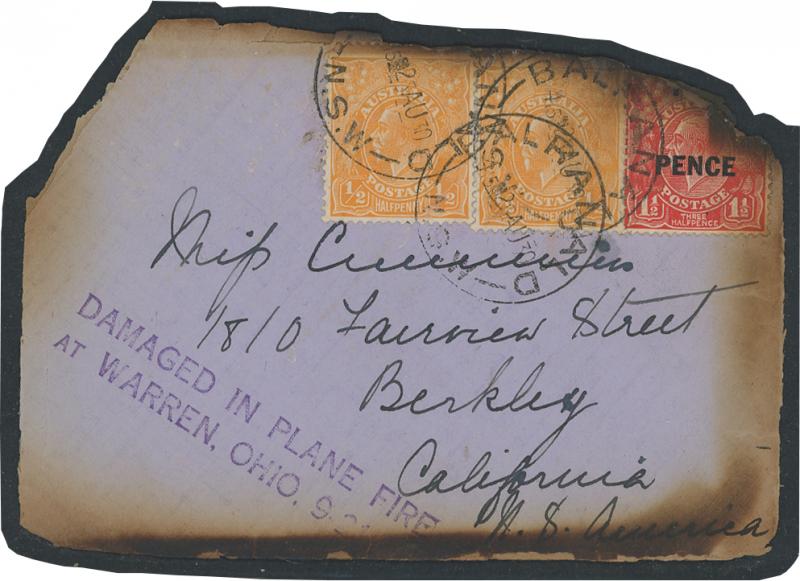 BALRANALD
N.S.W.
12 AU
AUSTRALIA
½ POSTAGE ½
HALFPENNY
BALRANALD
N.S.W.
AUSTRALIA
POSTAGE
HALFPENNY
PENCE
POSTAGE
1½ THREE HALFPENCE 1½
Miss Cummins
1810 Fairview Street
Berkley
California
U. S. America
DAMAGED IN PLANE FIRE
AT WARREN, OHIO. 9-